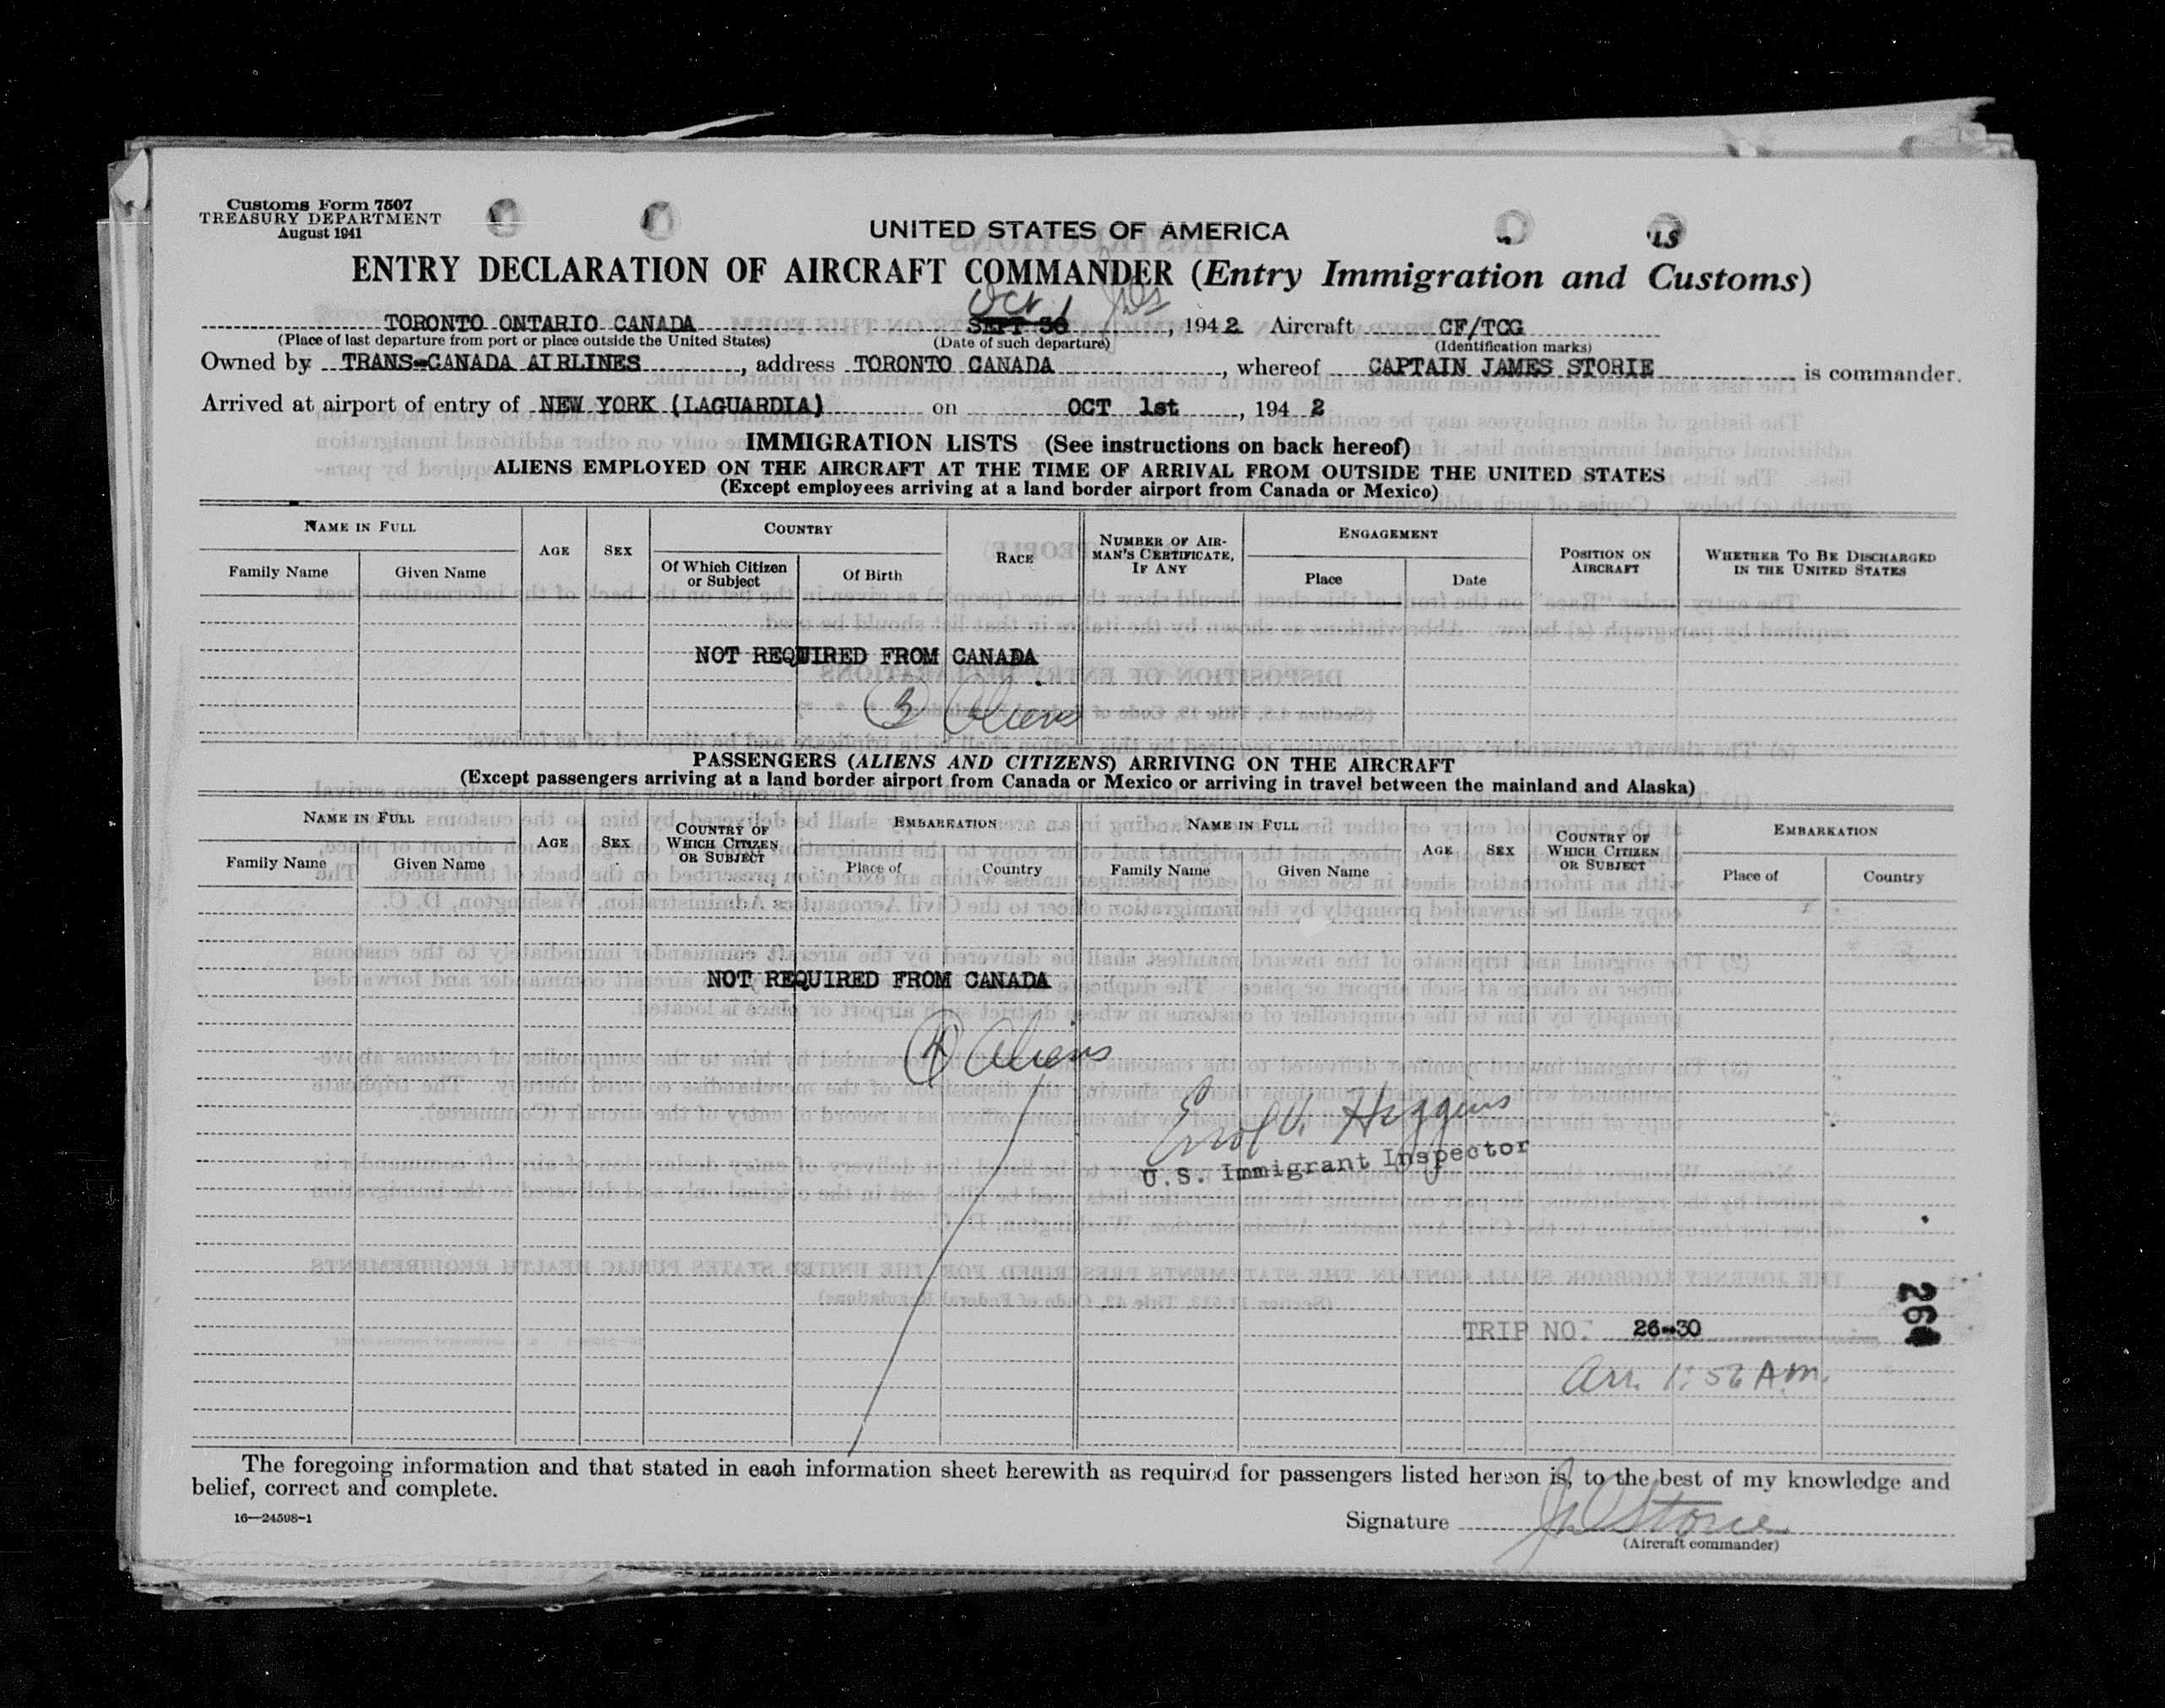 Customs Form 7507
TREASURY DEPARTMENT
August 1941
UNITED STATES OF AMERICA
ENTRY DECLARATION OF AIRCRAFT COMMANDER (Entry Immigration and Customs)
Oct 1
TORONTO ONTARIO CANADA SEPT 30, 1942 Aircraft CF/TCG
(Place of last departure from port or place outside the United States) (Date of such departure) (Identification marks)
Owned by TRANS-CANADA AIRLINES, address TORONTO CANADA, whereof CAPTAIN JAMES STORIE is commander.
Arrived at airport of entry of NEW YORK (LAGUARDIA) on OCT 1st, 1942
IMMIGRATION LISTS (See instructions on back hereof)
ALIENS EMPLOYED ON THE AIRCRAFT AT THE TIME OF ARRIVAL FROM OUTSIDE THE UNITED STATES
(Except employees arriving at a land border airport from Canada or Mexico)
NAME IN FULL
Family Name Given Name
AGE
SEX
COUNTRY
Of Which Citizen or Subject
Of Birth
RACE
NUMBER OF AIRMAN'S CERTIFICATE, IF ANY
ENGAGEMENT
Place Date
POSITION ON AIRCRAFT
WHETHER TO BE DISCHARGED IN THE UNITED STATES
NOT REQUIRED FROM CANADA
3 Aliens
PASSENGERS (ALIENS AND CITIZENS) ARRIVING ON THE AIRCRAFT
(Except passengers arriving at a land border airport from Canada or Mexico or arriving in travel between the mainland and Alaska)
NAME IN FULL
Family Name Given Name
AGE
SEX
COUNTRY OF WHICH CITIZEN OR SUBJECT
EMBARKATION
Place of Country
NAME IN FULL
Family Name Given Name
AGE
SEX
COUNTRY OF WHICH CITIZEN OR SUBJECT
EMBARKATION
Place of Country
NOT REQUIRED FROM CANADA
4 Aliens
Errol V. Higgins
U.S. Immigrant Inspector
TRIP NO. 26-30
Arr. 1:56 A.M.
The foregoing information and that stated in each information sheet herewith as required for passengers listed hereon is, to the best of my knowledge and
belief, correct and complete.
16—24598-1
Signature Storie
(Aircraft commander)